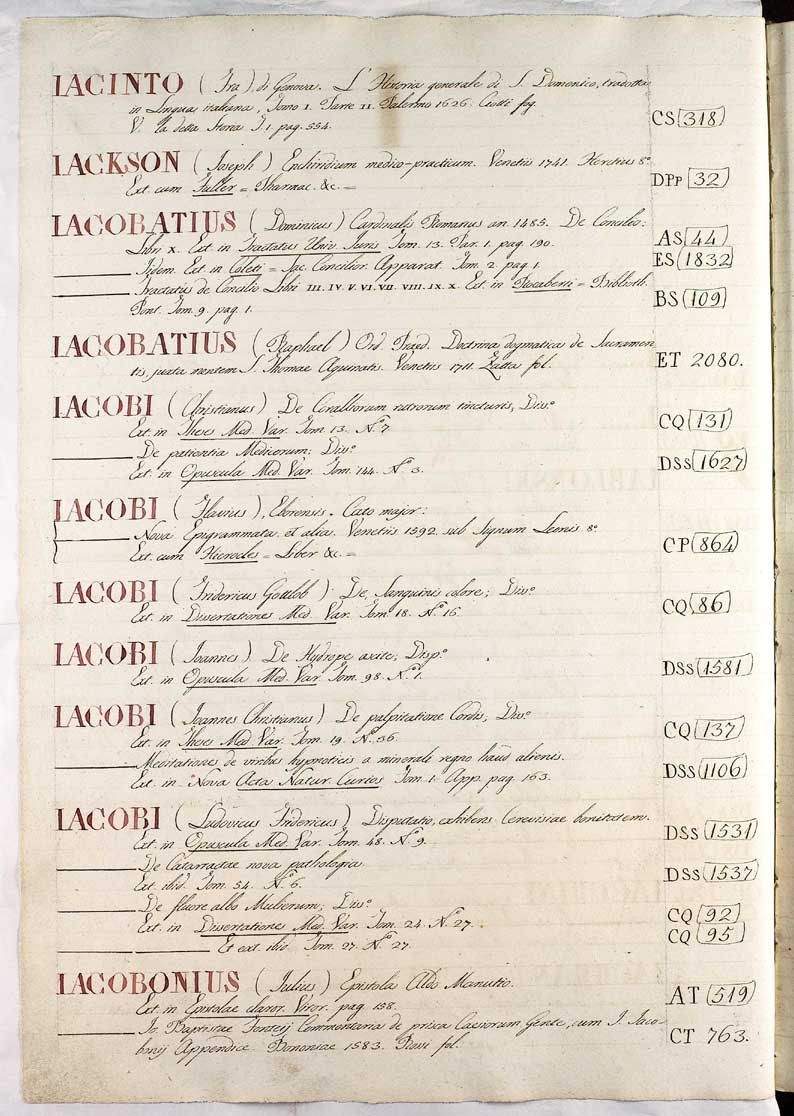 IACINTO (Fra), di Genova. L'Historia generale de S. Domenico, tradotta
in lingua italiana, Tomo I. Parte II. Palermo 1626. Ciotti fog.
V. la detta Storia T. 1. pag. 554. CS 318
IACKSON (Joseph) Enchiridium medico-practicum. Venetiis 1741. Hertius 8.º
Ext. cum Fuller = Pharmac. &c. = DPp 32
IACOBATIUS (Dominicus) Cardinalis Romanus an. 1485. De Concilio:
Libri X. Ext. in Tractatus Univ. Juris Tom. 13. Par. 1. pag. 190. AS 44
_____ Iidem. Ext. in Coleti = Sac. Concilior. Apparat. Tom. 2. pag. 1. ES 1832
_____ Tractatus de Concilio Libri III. IV. V. VI. VII. VIII. IX. X. Ext. in Rocaberti = Biblioth.
Pont. Tom. 9. pag. 1. BS 109
IACOBATIUS (Raphael) Ord. Praed. Doctrina dogmatica de Sacramen
tis, juxta mentem S. Thomae Aquinatis. Venetiis 1711. Zatta fol. ET 2080.
IACOBI (Christianus) De Coralliorum rubrorum tincturis, Diss.º
Ext. in Theses Med. Var. Tom. 13. N.º 7 CQ 131
_____ De patientia Medicorum; Diss.º
Ext. in Opuscula Med. Var. Tom. 144. N.º 3. DSS 1627
IACOBI (Flavius), Eborensis. Cato major:
_____ Nova Epigrammata et alia. Venetiis 1592. sub Signum Leonis 8.º
Ext. cum Hierocles = Liber &c. = CP 864
IACOBI (Fridericus Gottlob) De Sanguinis colore; Diss.º
Ext. in Dissertationes Med. Var. Tom. 18. N.º 16. CQ 86
IACOBI (Joannes) De Hydrope ascite; Disp.º
Ext. in Opuscula Med. Var. Tom. 98. N.º 1. DSS 1581
IACOBI (Joannes Christianus) De palpitatione Cordis; Diss.º
Ext. in Theses Med. Var. Tom. 19. N.º 36. CQ 137
_____ Meditationes de viribus hypnoticis a minerali regno haud alienis.
Ext. in Nova Acta Natur. Curios. Tom. 1. App. pag. 163. DSS 1106
IACOBI (Ludovicus Fridericus) Disputatio, exhibens Cerevisiae bonitatem.
Ext. in Opuscula Med. Var. Tom. 48. N.º 9. DSS 1531
_____ De Catarractae nova pathologia.
Ext. ibid. Tom. 54. N.º 6. DSS 1537
_____ De fluore albo Mulierum; Diss.º
Ext. in Dissertationes Med. Var. Tom. 24. N.º 27. CQ 92
_____ Et ext. ibid. Tom. 27. N.º 27. CQ 95
IACOBONIUS (Julius) Epistola Aldo Manutio.
Ext. in Epistolae claror. Viror. pag. 158. AT 519
_____ Jo. Baptistae Fonteij Commentaria de prisca Caesiorum Gente, cum J. Jaco-
bonij Appendice. Bononiae 1583. Rossi fol. CT 763.